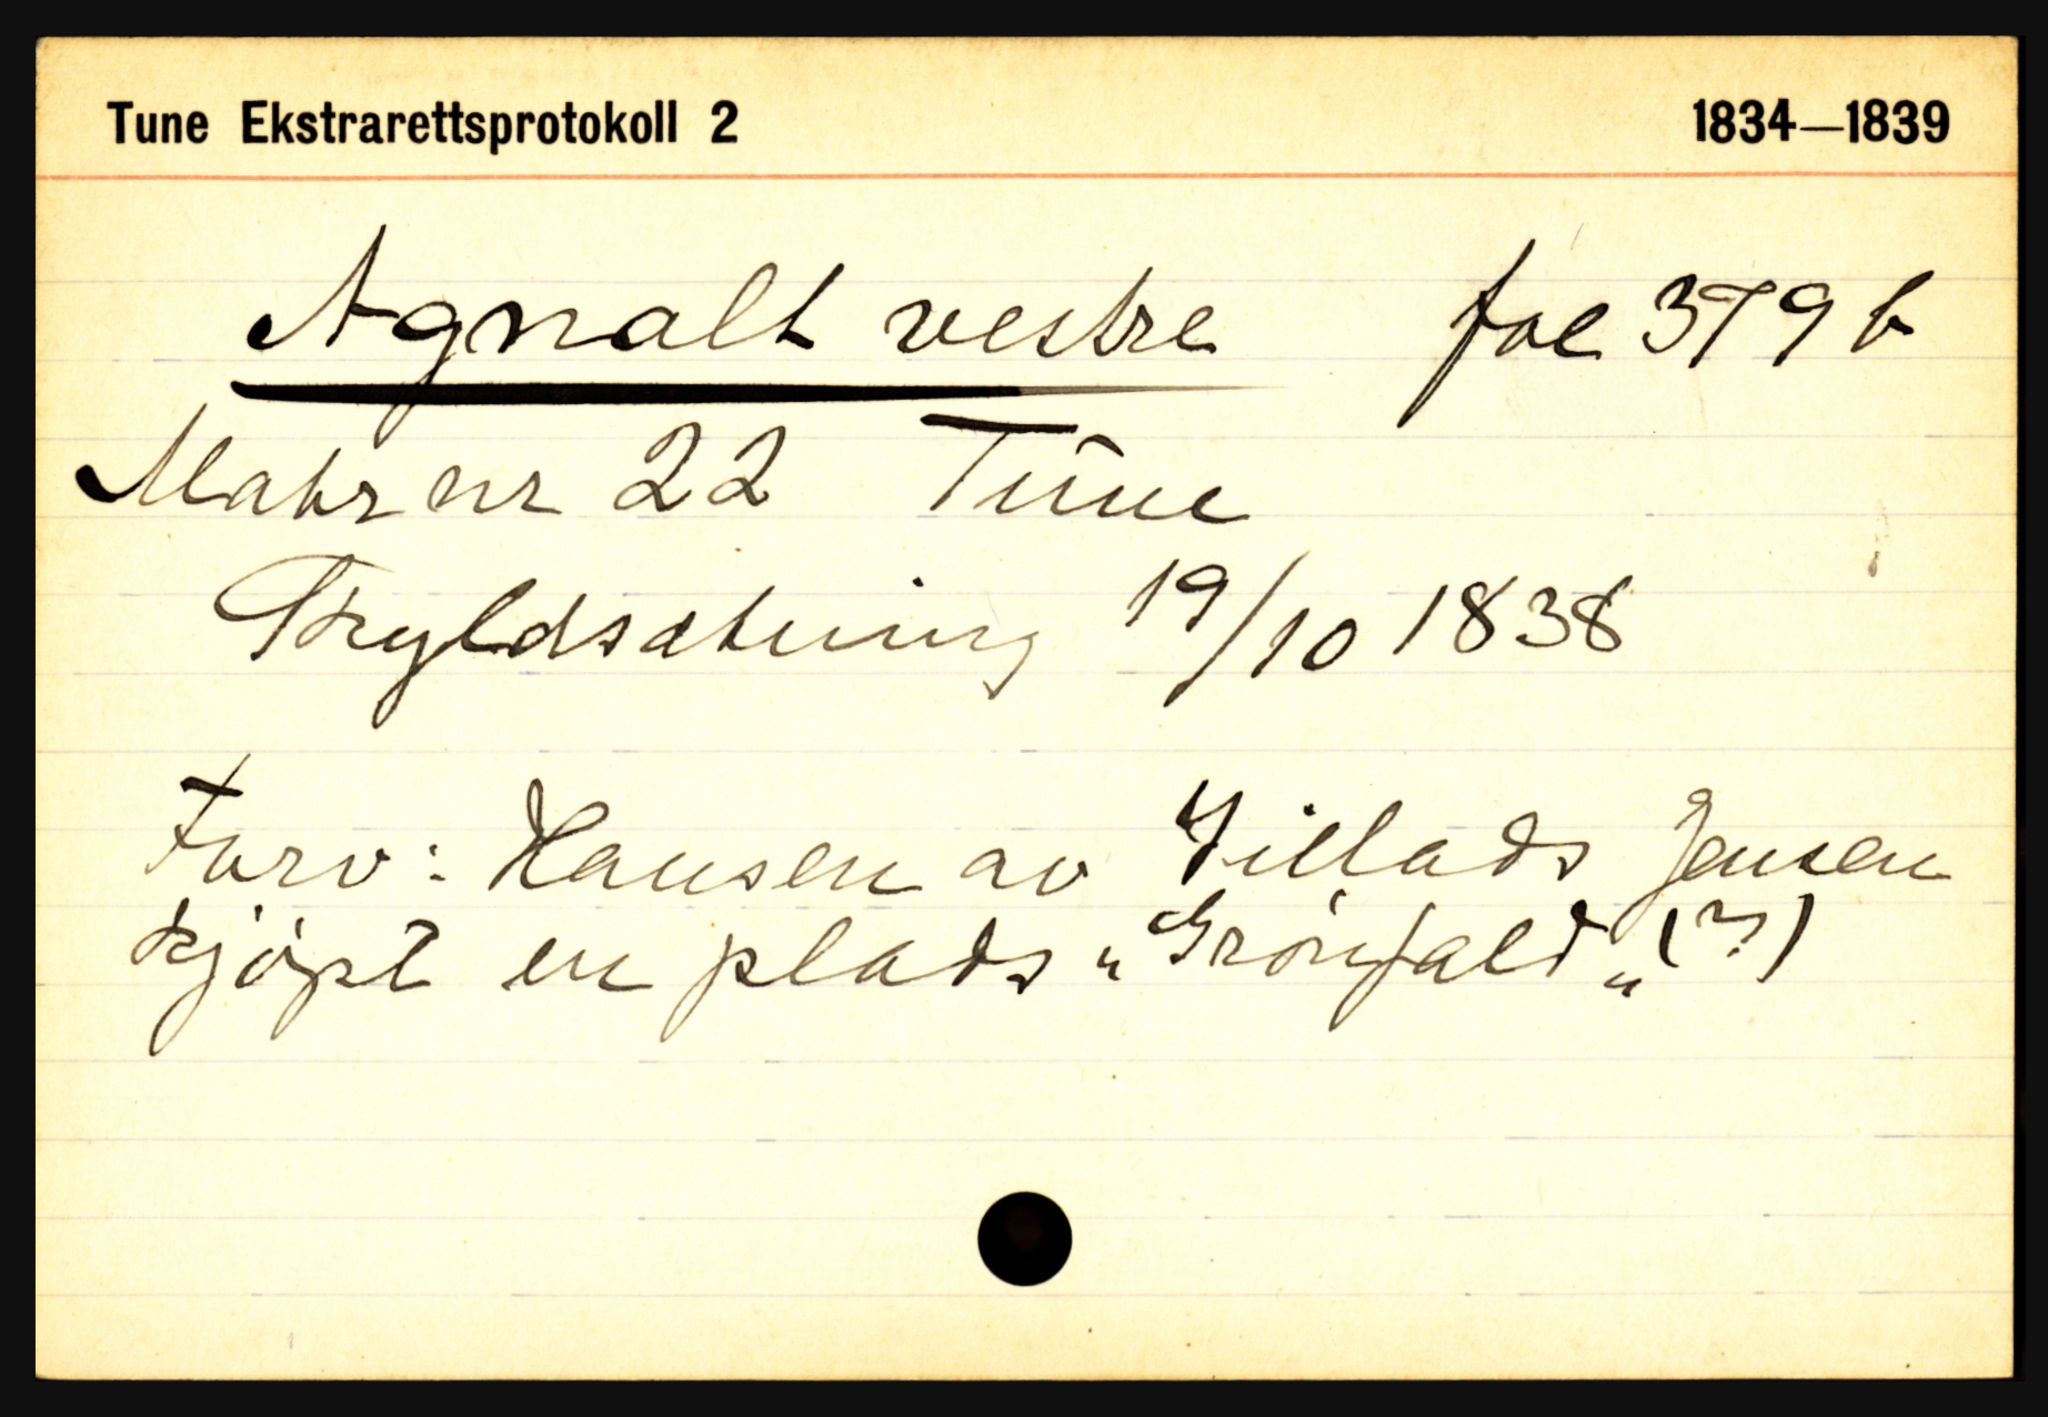 Tune Ekstrarettsprotokoll 2 1834—1839
Agnalt vestre fol 379 b
Matr nr 22 Tune
Skyldsætning 19/10 1838
Torv: Hansen av Villads Jensen
kjöpt en plads „Grönfald„ (?)